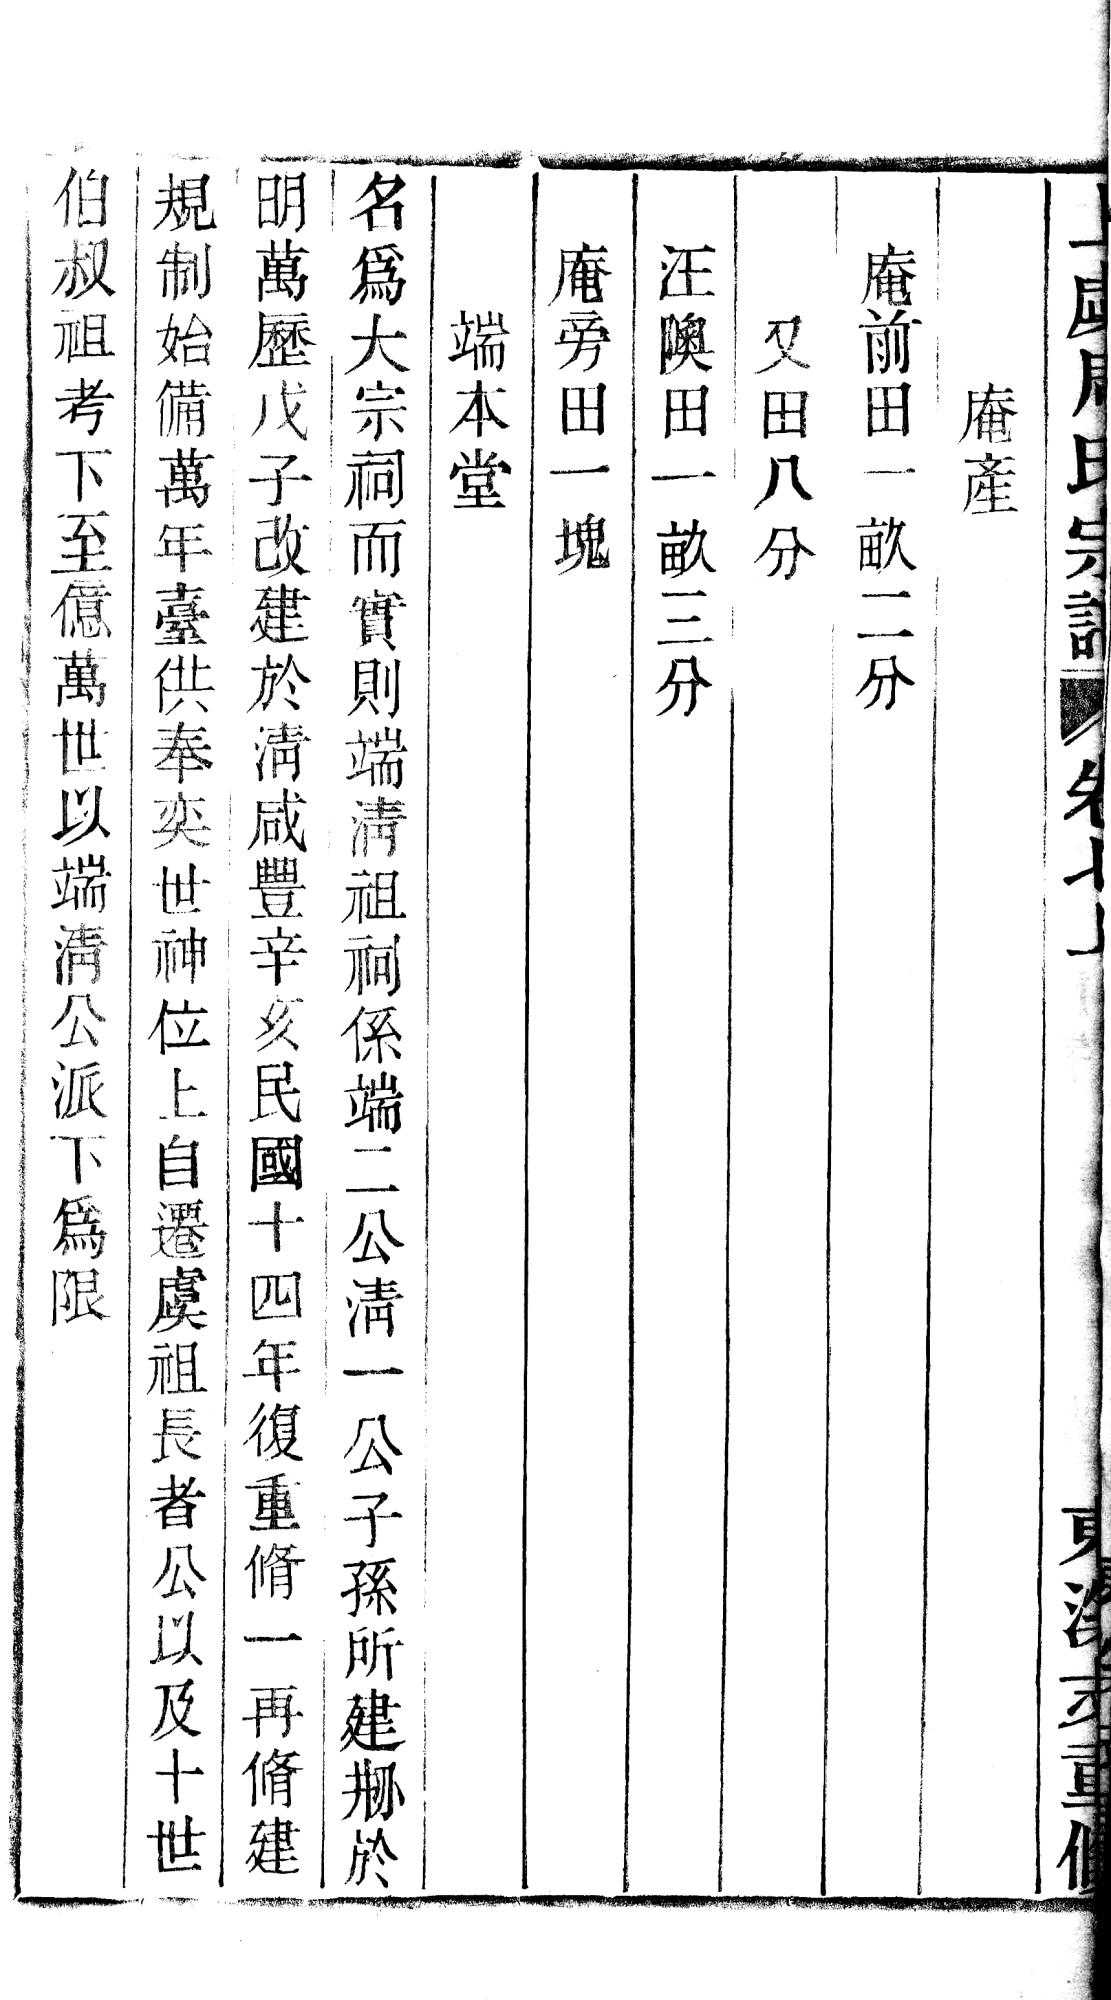 上虞周氏宗譜 卷七上 重修
庵產
庵前田一畝二分
又田八分
汪隩田一畝三分
庵旁田一塊
端本堂
名爲大宗祠而實則端淸祖祠係端二公淸一公子孫所建刱於
明萬歷戊子改建於淸咸豐辛亥民國十四年復重脩一再脩建
規制始備萬年臺供奉奕世神位上自遷虞祖長者公以及十世
伯叔祖考下至億萬世以端淸公派下爲限